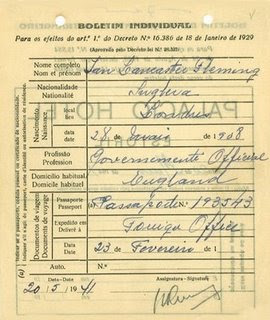 BOLETIM INDIVIDUAL
Para os efeitos do art.º 1.º do Decreto N.º 16.386 de 18 de Janeiro de 1929
Nome completo
Nom et prénom
Ian Lancaster Fleming
Nacionalidade
Nationalité
Inglesa
Nascimento
Naissance
local
lieu
Londres
data
date
28 de Maio de 1908
Profissão
Profession
Governmente Official
Domicilio habitual
Domicile habituel
England
Documentos de viagem
Documents de voyage
Passaporte
Passeport
nº Passaporte 193543
Expedido em
Délivré à
Foreign Office
Data
Date
23 Fevereiro
Autr.
(a)
Data-Date
Assinatura-Signature
20 5 1941